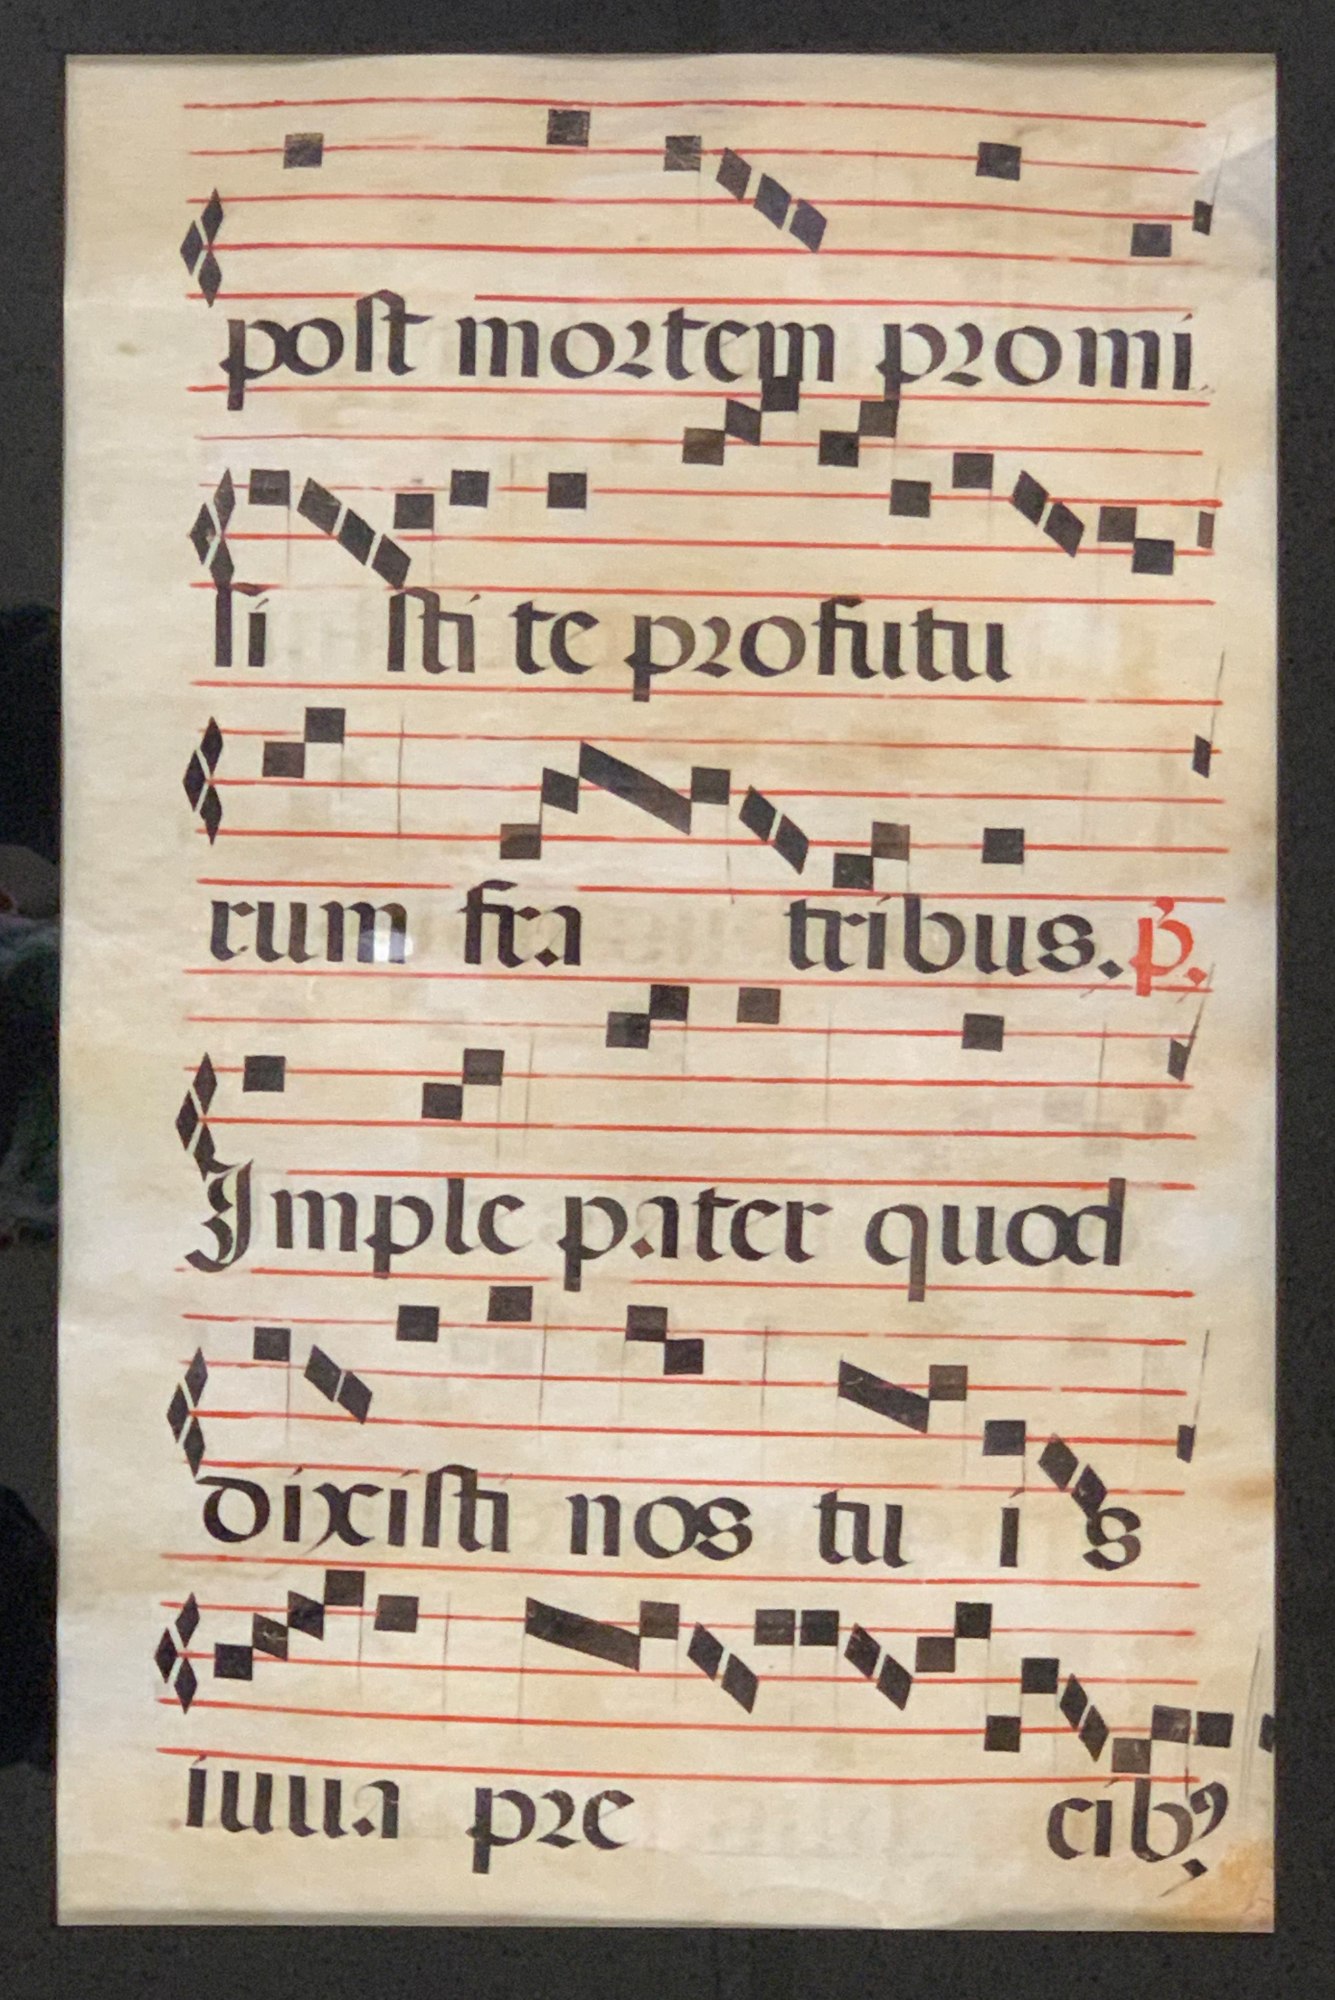 post mortem promi
si sti te profutu
rum fra tribus. p̃.
Imple pater quod
dixisti nos tu i s
iuua pre cibꝰ